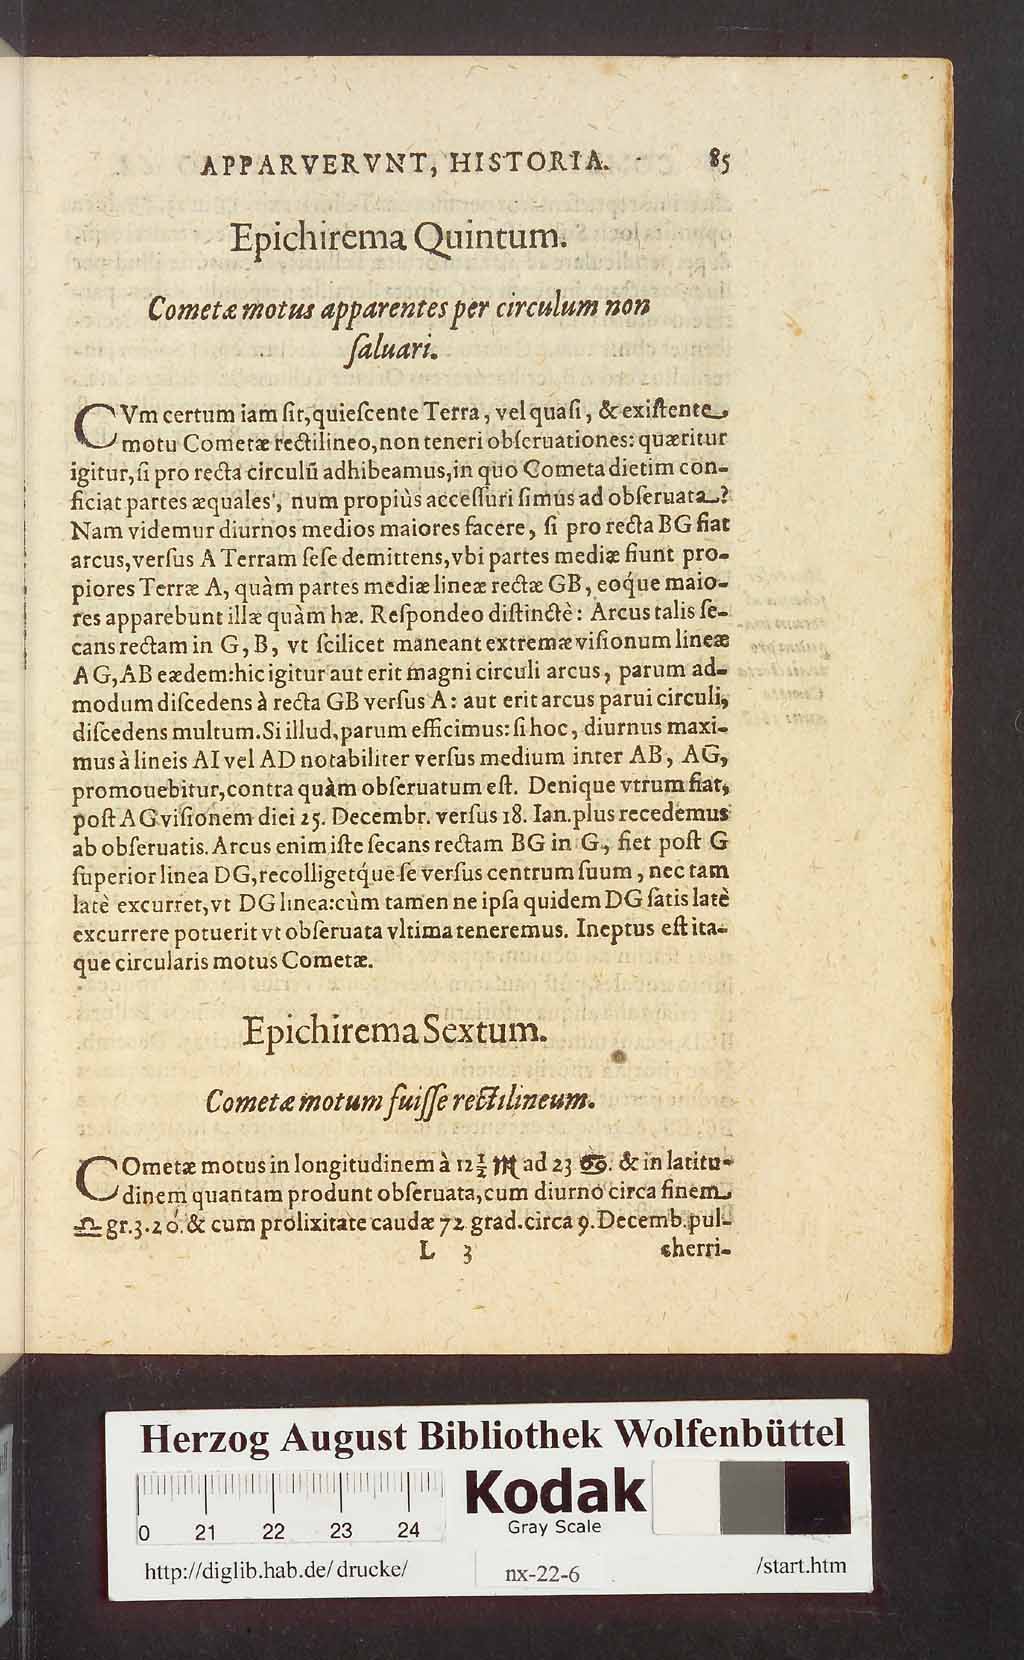 APPARVERVNT, HISTORIA. 85
Epichirema Quintum.
Cometæ motus apparentes per circulum non
ſaluari.
CVm certum iam ſit, quieſcente Terra, vel quaſi, & exiſtente
motu Cometæ rectilineo, non teneri obſeruationes: quæritur
igitur, ſi pro recta circulū adhibeamus, in quo Cometa dietim con-
ficiat partes æquales, num propiùs acceſſuri ſimus ad obſeruata?
Nam videmur diurnos medios maiores facere, ſi pro recta BG fiat
arcus, verſus A Terram ſeſe demittens, vbi partes mediæ fiunt pro-
piores Terræ A, quàm partes mediæ lineæ rectæ GB, eoq́ue maio-
res apparebunt illæ quàm hæ. Reſpondeo diſtinctè: Arcus talis ſe-
cans rectam in G, B, vt ſcilicet maneant extremæ viſionum lineæ
AG, AB eædem: hic igitur aut erit magni circuli arcus, parum ad-
modum diſcedens à recta GB verſus A: aut erit arcus parui circuli,
diſcedens multum. Si illud, parum efficimus: ſi hoc, diurnus maxi-
mus à lineis AI vel AD notabiliter verſus medium inter AB, AG,
promouebitur, contra quàm obſeruatum eſt. Denique vtrum fiat,
poſt AG viſionem diei 25. Decembr. verſus 18. Ian. plus recedemus
ab obſeruatis. Arcus enim iſte ſecans rectam BG in G, fiet poſt G
ſuperior linea DG, recolligetq́ue ſe verſus centrum ſuum, nec tam
latè excurret, vt DG linea: cùm tamen ne ipſa quidem DG ſatis latè
excurrere potuerit vt obſeruata vltima teneremus. Ineptus eſt ita-
que circularis motus Cometæ.
Epichirema Sextum.
Cometæ motum fuiſſe rectilineum.
COmetæ motus in longitudinem à 12½ ♏ ad 23 ♋. & in latitu-
dinem quantam produnt obſeruata, cum diurno circa finem
♎ gr. 3. 20́. & cum prolixitate caudæ 72 grad. circa 9. Decemb. pul-
L 3 cherri-
Herzog August Bibliothek Wolfenbüttel
0 21 22 23 24
Kodak
Gray Scale
http://diglib.hab.de/drucke/ nx-22-6 /start.htm